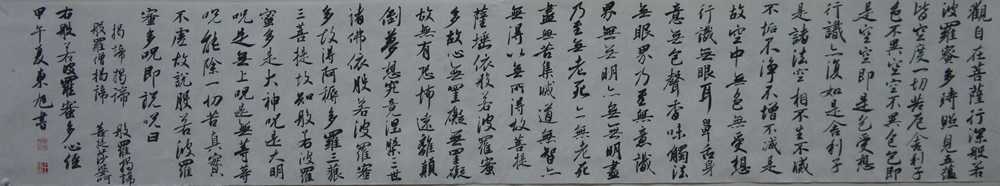 觀自在菩薩行深般若
波羅蜜多時照見五蘊
皆空度一切苦厄舍利子
色不異空空不異色色即
是空空即是色受想
行識亦復如是舍利子
是諸法空相不生不滅
不垢不淨不增不減是
故空中無色無受想
行識無眼耳鼻舌身
意無色聲香味觸法
無眼界乃至無意識
界無無明亦無無明盡
乃至無老死亦無老死
盡無苦集滅道無智亦
無得以無所得故菩提
薩埵依般若波羅蜜
多故心無罣礙無罣礙
故無有恐怖遠離顛
倒夢想究竟涅槃三世
諸佛依般若波羅蜜
多故得阿耨多羅三藐
三菩提故知般若波羅
蜜多是大神咒是大明
咒是無上咒是無等等
咒能除一切苦真實
不虛故說般若波羅
蜜多咒即說咒曰
揭諦揭諦 般羅揭諦
般羅僧揭諦 菩提沙婆訶
右般若波羅蜜多心經
甲午夏東旭書